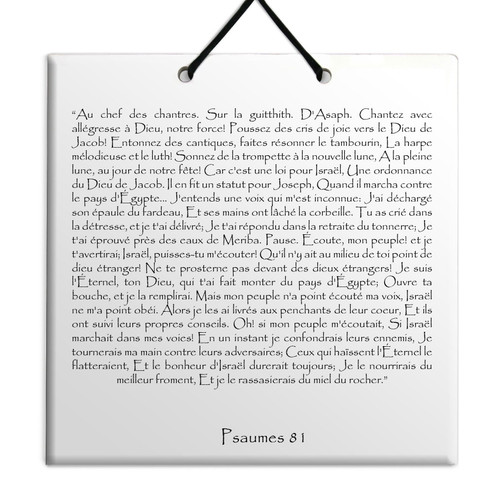 “Au chef des chantres. Sur la guitthith. D'Asaph. Chantez avec
allégresse à Dieu, notre force! Poussez des cris de joie vers le Dieu de
Jacob! Entonnez des cantiques, faites résonner le tambourin, La harpe
mélodieuse et le luth! Sonnez de la trompette à la nouvelle lune, A la pleine
lune, au jour de notre fête! Car c'est une loi pour Israël, Une ordonnance
du Dieu de Jacob. Il en fit un statut pour Joseph, Quand il marcha contre
le pays d'Égypte... J'entends une voix qui m'est inconnue: J'ai déchargé
son épaule du fardeau, Et ses mains ont lâché la corbeille. Tu as crié dans
la détresse, et je t'ai délivré; Je t'ai répondu dans la retraite du tonnerre; Je
t'ai éprouvé près des eaux de Meriba. Pause. Écoute, mon peuple! et je
t'avertirai; Israël, puisses-tu m'écouter! Qu'il n'y ait au milieu de toi point de
dieu étranger! Ne te prosterne pas devant des dieux étrangers! Je suis
l'Éternel, ton Dieu, qui t'ai fait monter du pays d'Égypte; Ouvre ta
bouche, et je la remplirai. Mais mon peuple n'a point écouté ma voix, Israël
ne m'a point obéi. Alors je les ai livrés aux penchants de leur coeur, Et ils
ont suivi leurs propres conseils. Oh! si mon peuple m'écoutait, Si Israël
marchait dans mes voies! En un instant je confondrais leurs ennemis, Je
tournerais ma main contre leurs adversaires; Ceux qui haïssent l'Éternel le
flatteraient, Et le bonheur d'Israël durerait toujours; Je le nourrirais du
meilleur froment, Et je le rassasierais du miel du rocher.”
Psaumes 81